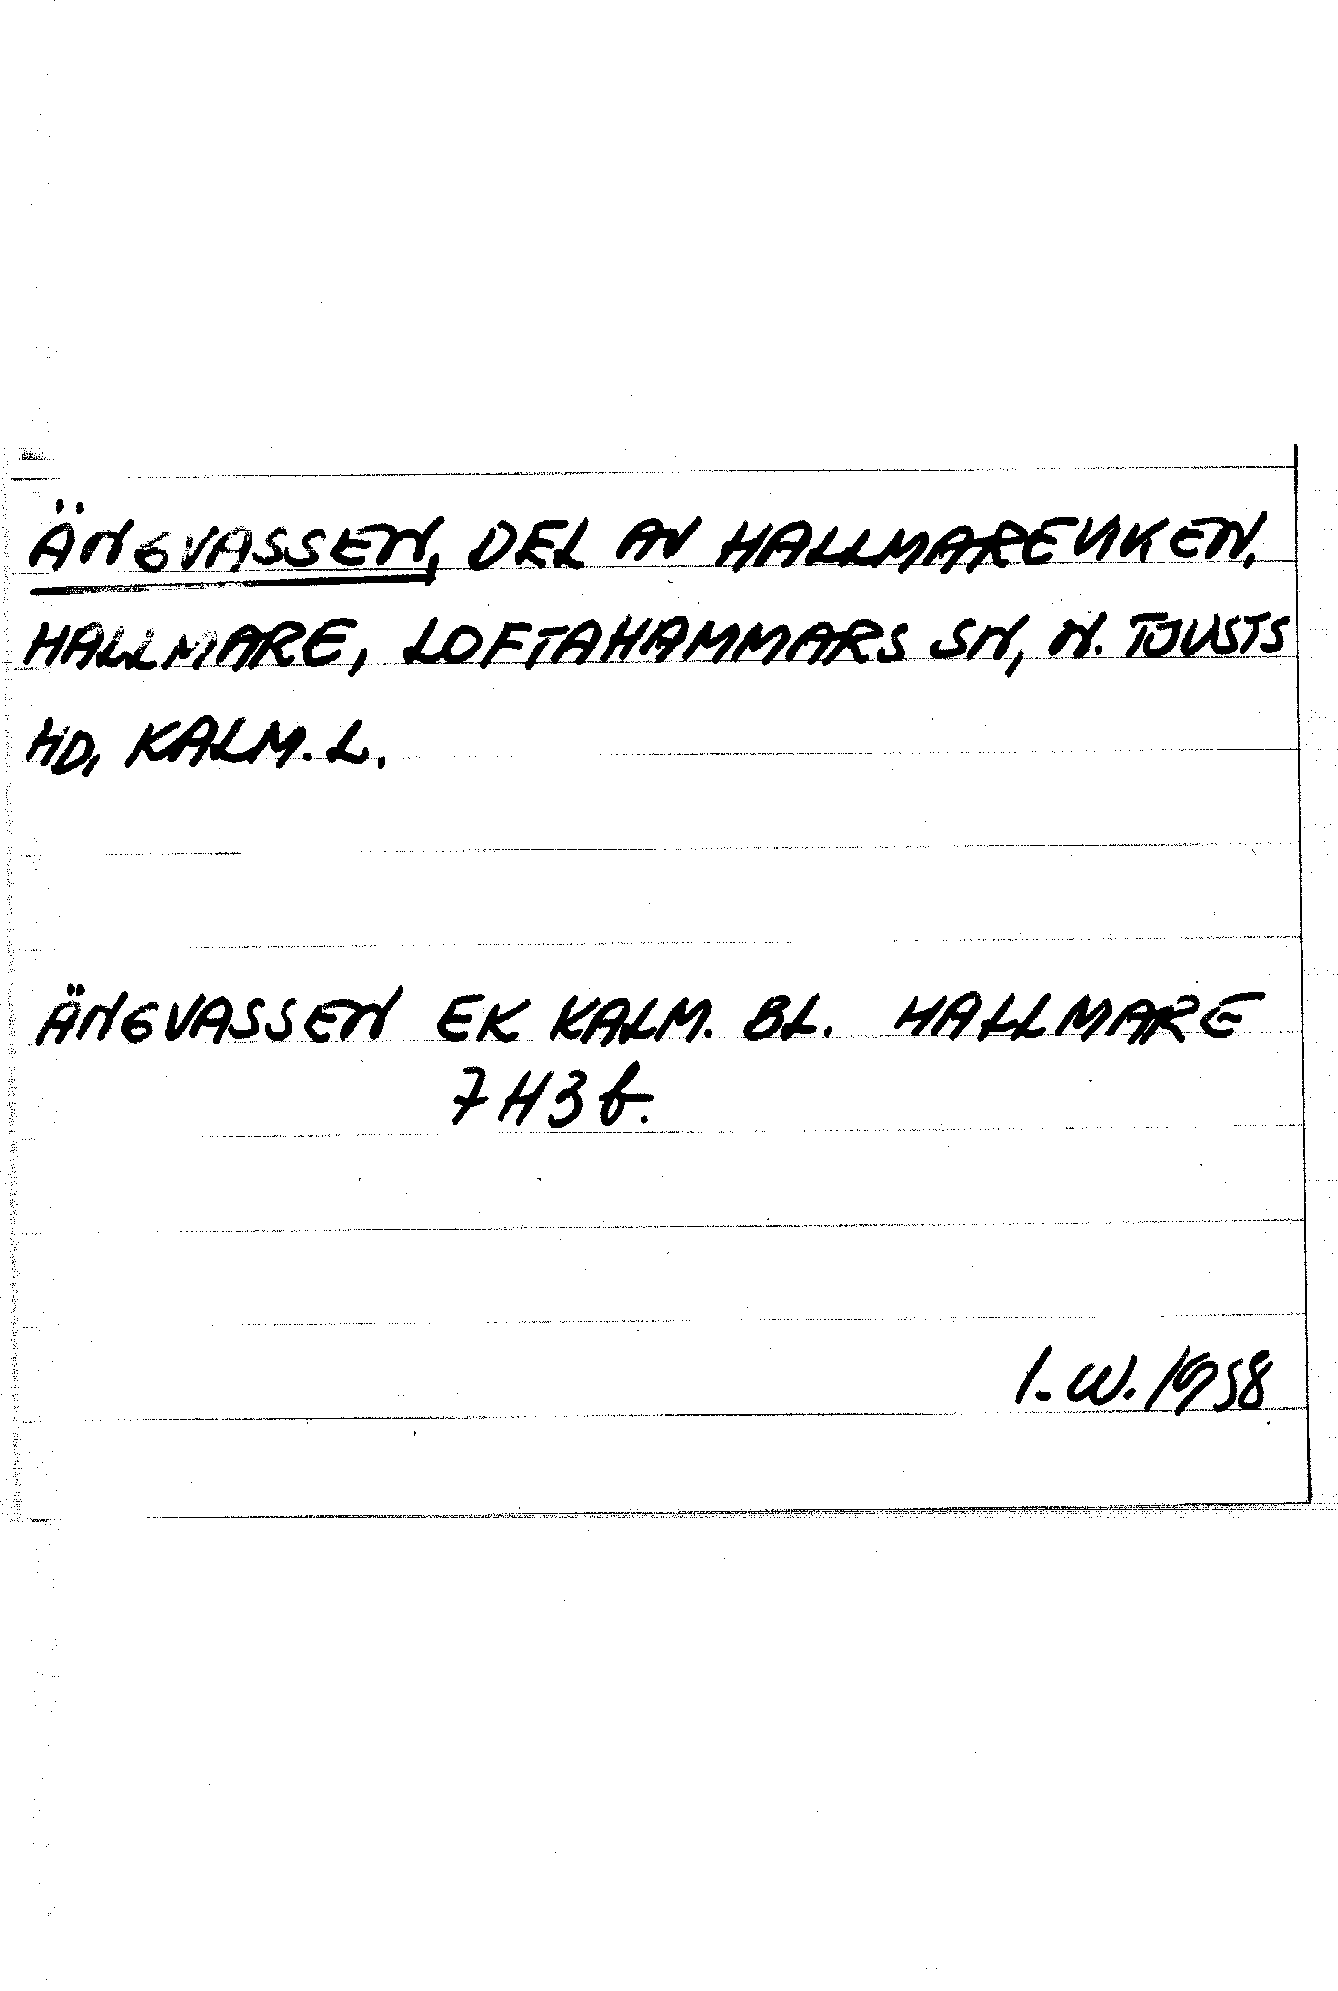 ÄNGVASSEN, DEL AV HALLMAREVIKEN,
HALLMARE, LOFTAHAMMARS SN, N. TJUSTS
HD, KALM. L.
ÄNGVASSEN EK KALM. BL. HALLMARE
7H3f.
I.W. 1958